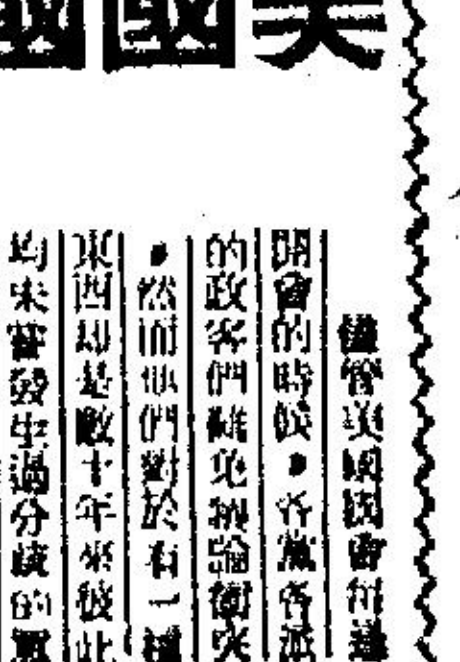 美國國
儘管美國國會每逢
開會的時候，各黨各派
的政客們難免辯論衝突
，然而他們對於有一種
東西却是數十年來彼此
均未嘗發生過分歧的